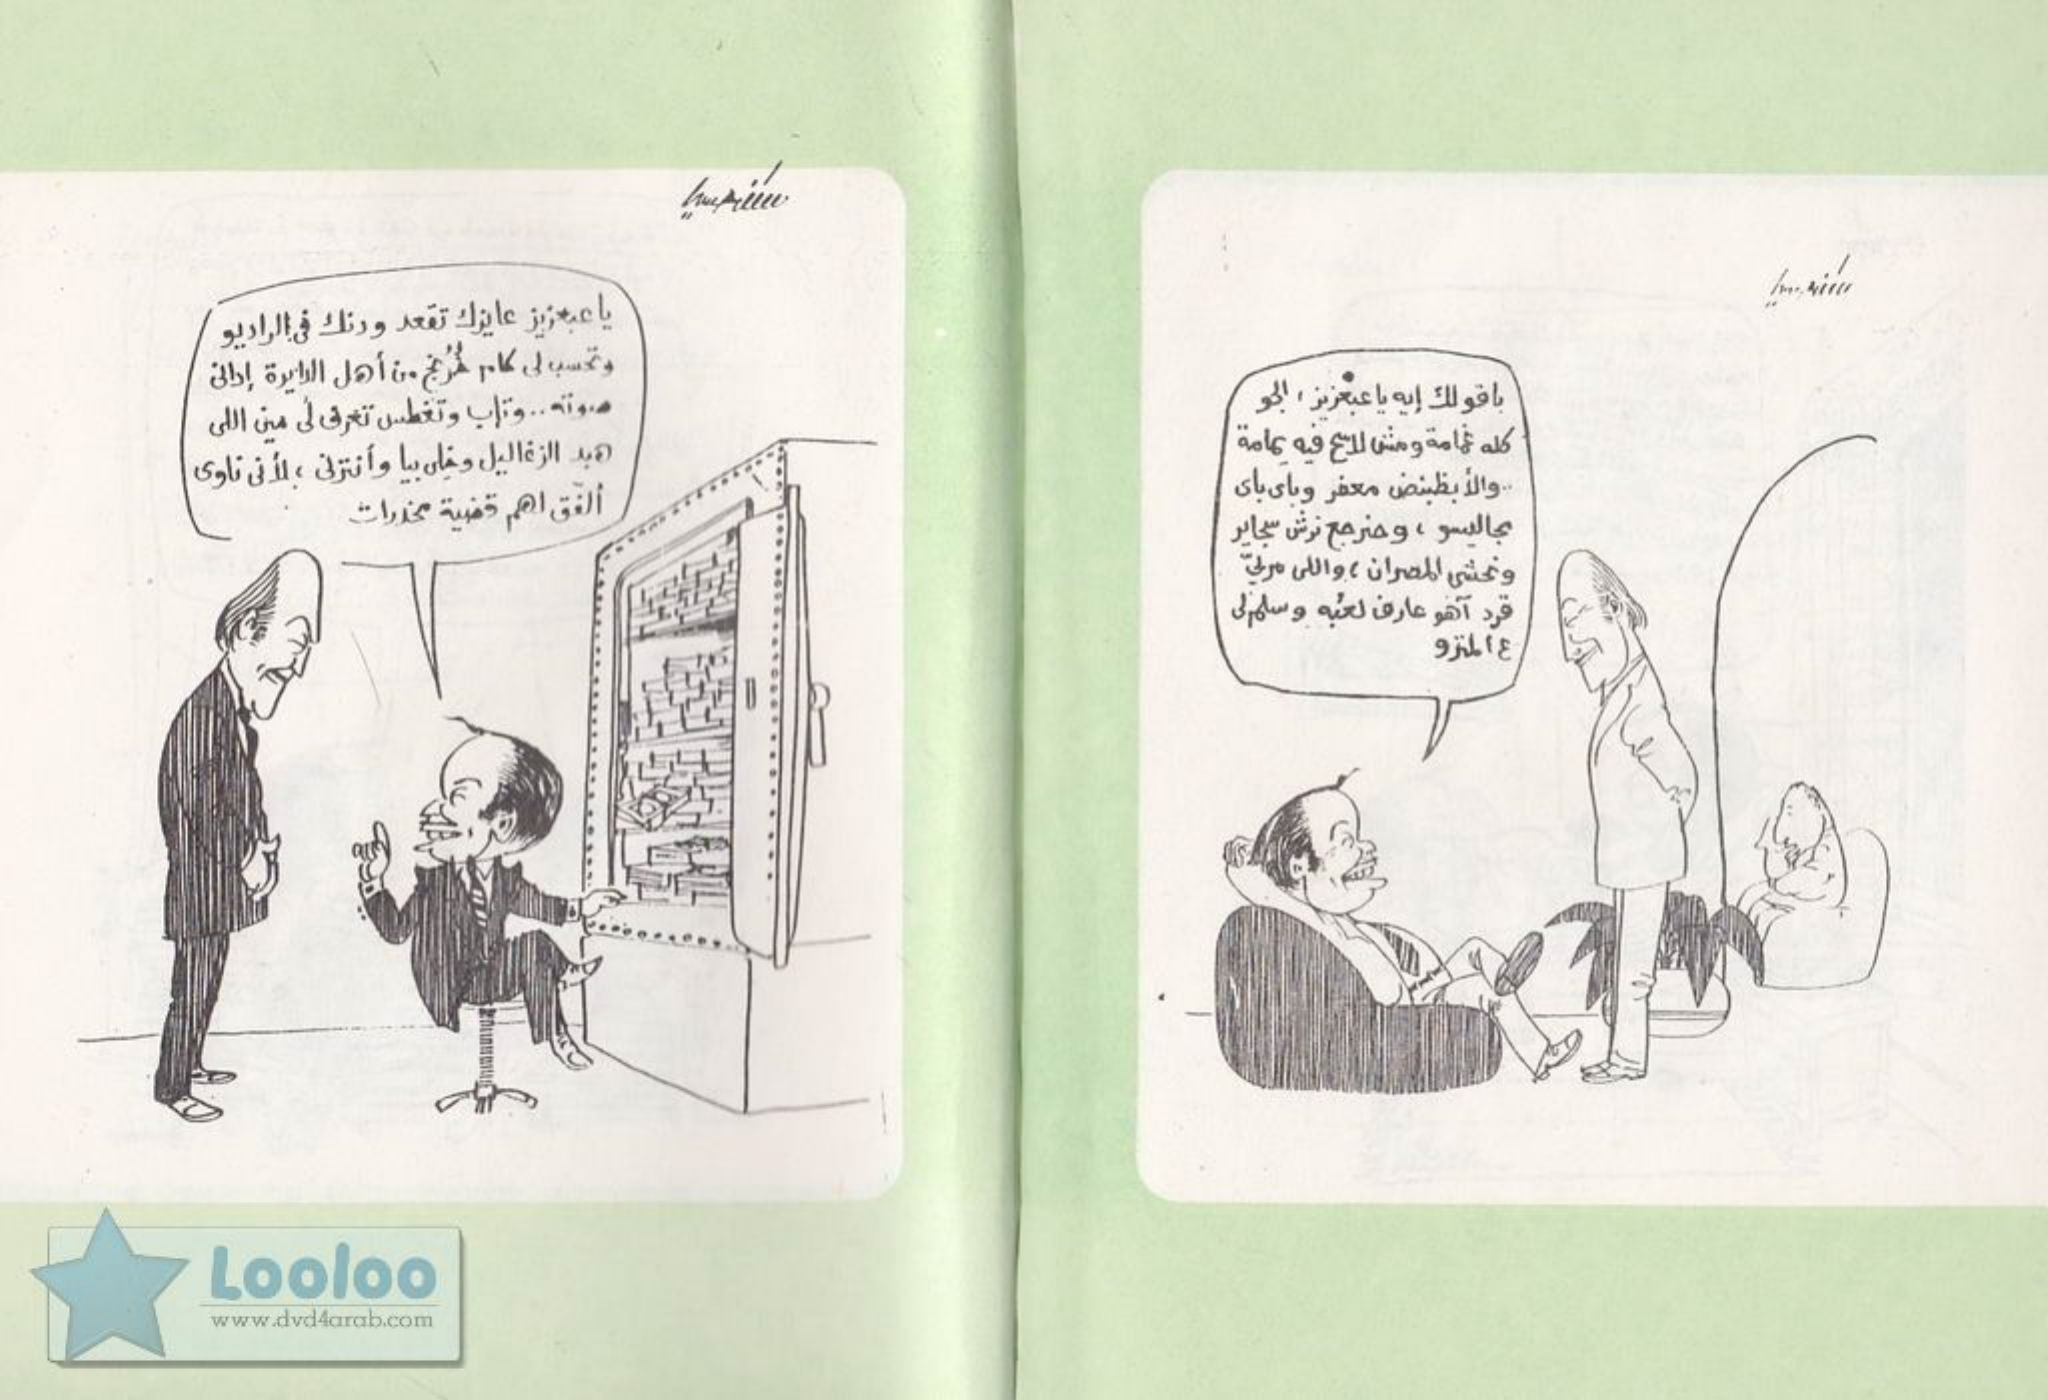 باقولك إيه يا عبعزيز، الجو
كله غمامة ومش لايح فيه يمامة
..والأبظبنض معفر وباى باى
بجاليسو، وحنرجع نرش سجاير
ونحشى المصران، واللى مربىّ
قرد آهو عارف لعبُه وسلم لى
ع المترو
يا عبعزيز عايزك تقعد ودنك فى الراديو
وتحسب لى كام خُرُنج من أهل الدايرة إدانى
صوته.. وتإب وتغطس تعرف لى مين اللى
هبد الزغاليل وخلى بيا وأنتزنى، لأنى ناوى
ألفّق لهم قضية مخدرات
Looloo
www.dvd4arab.com